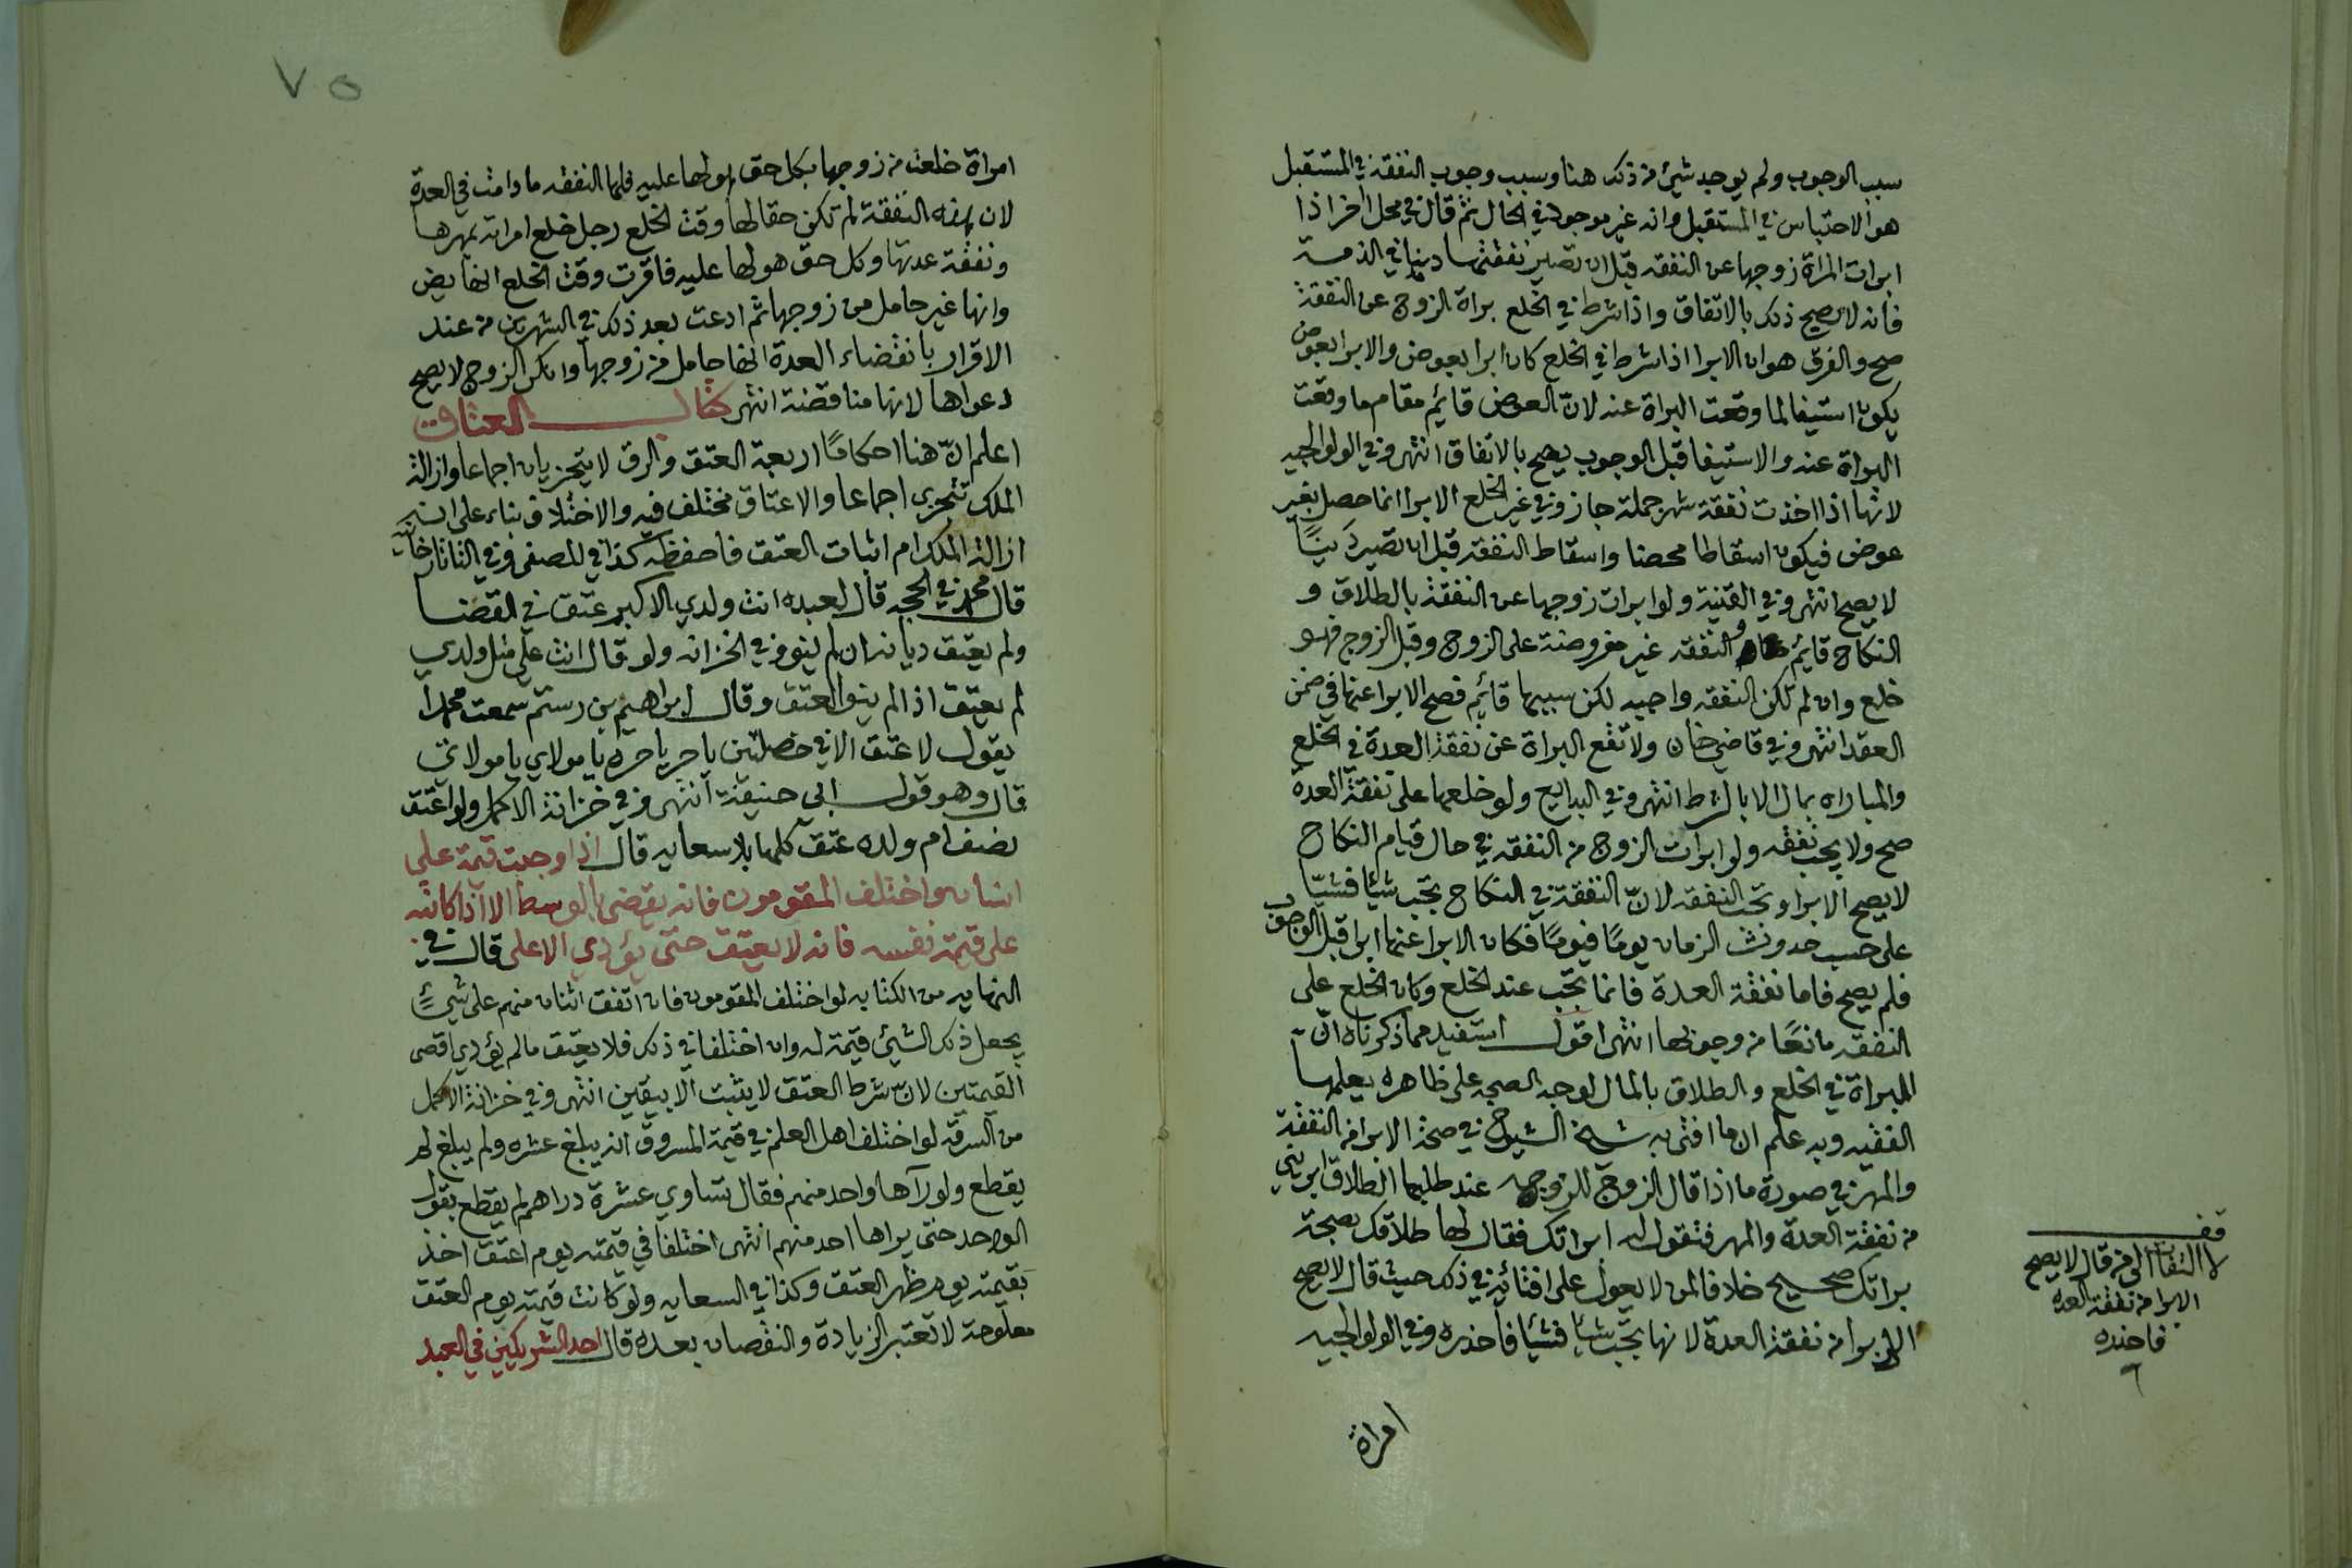 سبب الوجوب ولم يوجد شيئ من ذلك هنا وسبب وجوب النفقة في المستقبل
هو الاحتباس في المستقبل وانه غير موجود في الحال ثم قال في محل اخر اذا
ابرات المراة زوجها عن النفقه قبل ان تصير نفقتها دينا في الذمة
فانه لا يصح ذلك بالاتفاق واذا شرط في الخلع براة الزوج عن النفقة
صح والفرق هو ان الابرا اذا شرط في الخلع كان ابرا بعوض والابرا بعوض
يكون استيفا لما وقعت البراة عنه لانّ العوض قائم مقام ما وقعت
البراة عنه والاستيفا قبل الوجوب يصح بالاتفاق انتهى وفي الولوالجيه
لانها اذا اخذت نفقة شهر جملة جاز وفي غير الخلع الابرا انما حصل بغير
عوض فيكون اسقاطا محضا واسقاط النفقة قبل ان تصير دَينًا
لا يصح انتهى وفي القنية ولو ابرات زوجها عن النفقة بالطلاق و
النكاح قائم والنفقه غير مفروضة على الزوج وقبل الزوج فهو
خلع وان لم تكن النفقه واجبه لكن سببها قائم فصح الابرا عنها في ضمن
العقد انتهى وفي قاضي خان ولا تقع البراة عن نفقة العدة في الخلع
والمباراه بمال الا بالشرط انتهى وفي البدايع ولو خلعها على نفقة العدة
صح ولا يجب نفقه ولو ابرات الزوج من النفقه في حال قيام النكاح
لا يصح الابرا وتجب النفقه لانّ النفقة في النكاح تجب شيئا فشيئا
على حسب حدوث الزمان يومًا فيومًا فكان الابرا عنها ابرا قبل الوجوب
فلم يصح فاما نفقة العدة فانما تجب عند الخلع وكان الخلع على
النفقه مانعًا من وجوبها انتهى اقول استفيد مما ذكرناه انّ
البراة في الخلع والطلاق بالمال لوجه الصحه على ظاهره يعلمها
الفقيه وبه علم ان ما افتى به شيخ الشيوخ في صحة الابرا من النفقة
والمهر في صورة ما اذا قال الزوج للزوجه عند طلبها الطلاق ابريني
من نفقة العدة والمهر فتقول له ابراتك فقال لها طلاقك بصحة
براتك صحيح خلافا لمن لا يعول على افتائه في ذلك حيث قال لا يصح
الابرا من نفقة العدة لانها تجب شيئا فشيئا فاحذره وفي الولوالجيه
امراة
قف
لا التفات الى من قال لا يصح
الابرا من نفقة العده
فاحذره
٧٥
امراة خلعت من زوجها بكل حق هو لها عليه فلها النفقه ما دامت في العدة
لان هذه النفقة لم تكن حقا لها وقت الخلع رجل خلع امراته بمهرها
ونفقة عدتها وكل حق هو لها عليه فاقرت وقت الخلع انها حايض
وانها غير حامل من زوجها ثم ادعت بعد ذلك في الشهرين من عند
الاقرار بانقضاء العدة انها حامل من زوجها وانكر الزوج لا يصح
دعواها لانها مناقضة انتهى كتاب العتاق
اعلم انّ هنا احكامًا اربعة العتق والرق لا يتجزيان اجماعا وازالة
الملك تتجزى اجماعا والاعتاق مختلف فيه والاختلاف بناء على انه
ازالة الملك ام اثبات العتق فاحفظه كذا في المصفى وفي التاتارخانيه
قال محمد في الحجه قال لعبده انت ولدي الاكبر عتق في القضا
ولم يعتق ديانه ان لم ينو وفي الخزانه ولو قال انت على مثل ولدي
لم يعتق اذا لم ينو العتق وقال ابراهيم بن رستم سمعت محمدا
يقول لا عتق الا في خصلتين يا حر يا حره يا مولاي يا مولاتي
قال وهو قول ابي حنيفة انتهى وفي خزانة الاكمل ولو اعتق
نصف ام ولده عتق كلها بلا سعايه قال اذا وجبت قيمة على
انسان واختلف المقومون فانه يقضى بالوسط الا اذا كاتبه
على قيمة نفسه فانه لا يعتق حتى يؤدي الاعلى قال في
النهايه من الكتابه لو اختلف المقومون فان اتفق اثنان منهم على شيئ
يجعل ذلك الشيئ قيمة له وان اختلفا في ذلك فلا يعتق ما لم يؤدي اقصى
القيمتين لانّ شرط العتق لا يثبت الا بيقين انتهى وفي خزانة الاكمل
من السرقه لو اختلف اهل العلم في قيمة المسروق انه يبلغ عشره ولم يبلغ لم
يقطع ولو رآها واحد منهم فقال تساوي عشرة دراهم لم يقطع بقول
الواحد حتى يراها احد منهم انتهى اختلفا في قيمته يوم اعتق اخذ
بقيمته يوم ظهر العتق وكذا في السعايه ولو كانت قيمته يوم العتق
معلومة لا تعتبر الزيادة والنقصان بعده قال احد الشريكين في العبد